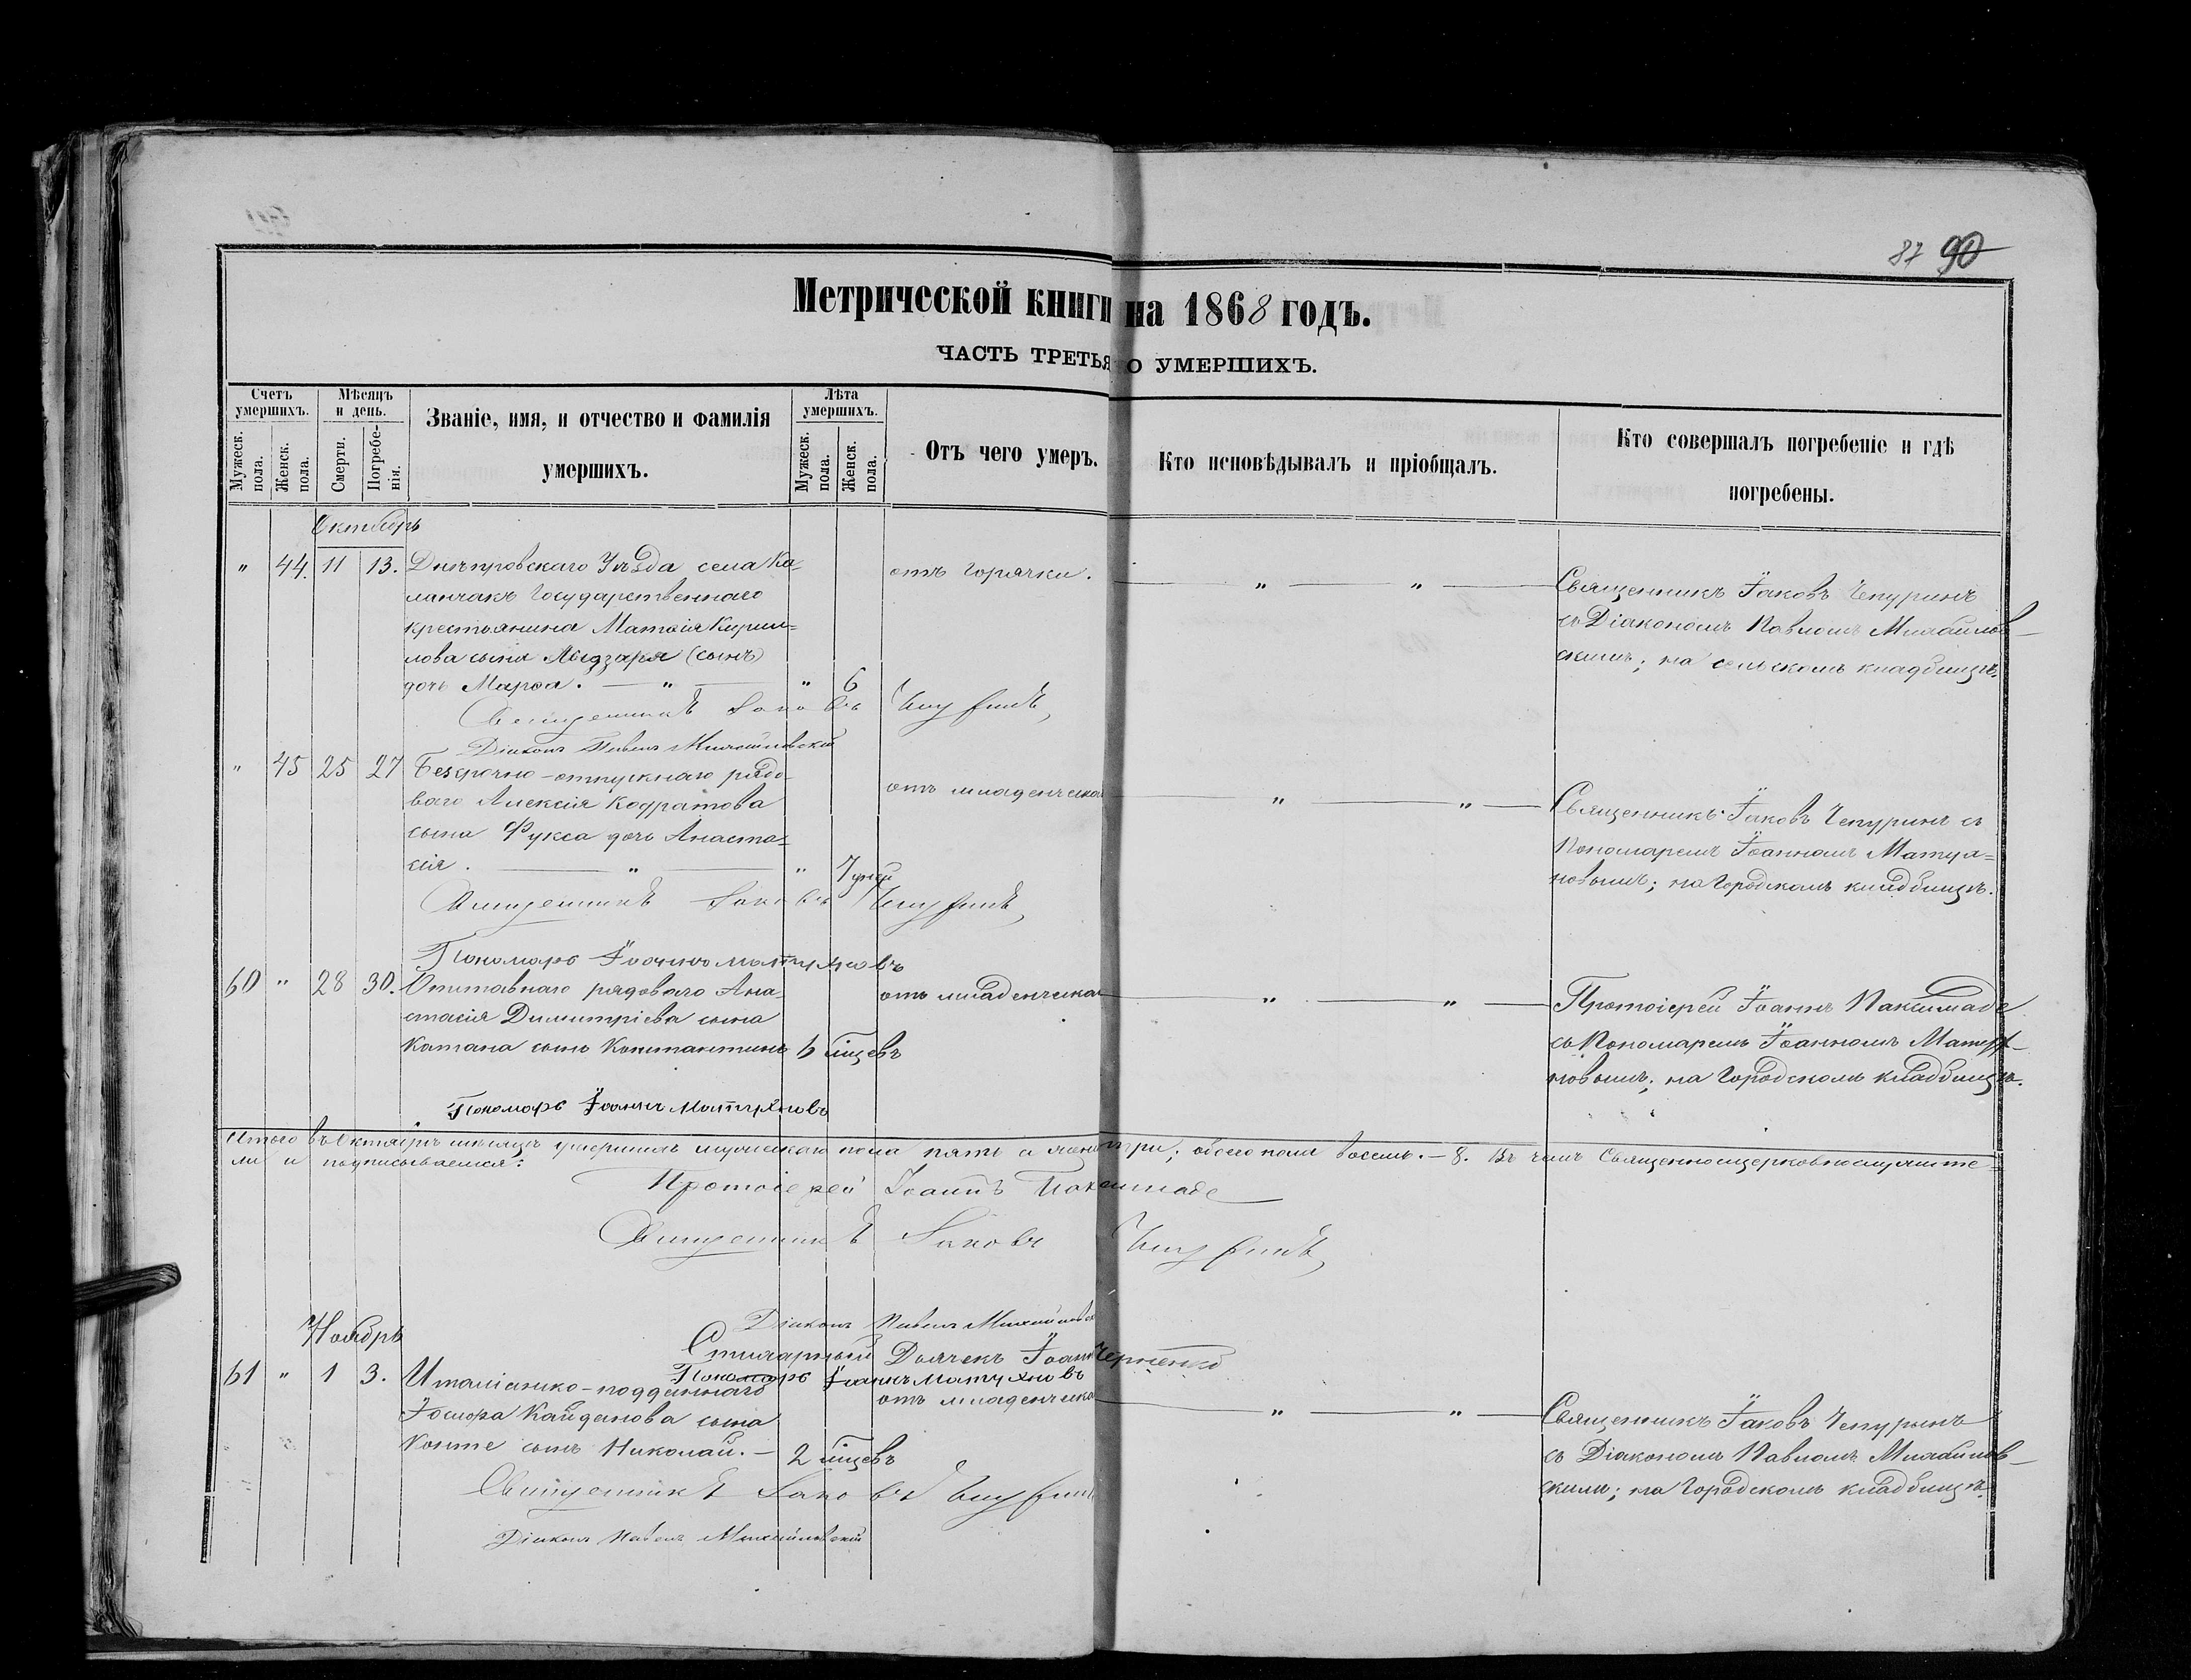 87 90
Метрической книги на 1868 годъ.
ЧАСТЬ ТРЕТЬЯ О УМЕРШИХЪ.
Счетъ умершихъ.
Мужеск. пола.
Женск. пола.
Мѣсяцъ и день.
Смерти.
Погребенія.
Званіе, имя, и отчество и фамилія
умершихъ.
Лѣта умершихъ.
Мужеск. пола.
Женск. пола.
Отъ чего умеръ.
Кто исповѣдывалъ и пріобщалъ.
Кто совершалъ погребеніе и гдѣ
погребены.
Октябрь
" 44. 11 13. Днѣпровскаго Уѣзда села Ка-
ланчакъ Государственнаго
крестьянина Матѳія Кирил=
лова сына (сынъ)
дочь Марѳа. — " — " 6
отъ горячки.
" "
Священникъ Іаковъ Чепуринъ
съ Діакономъ Павломъ Михайлов-
скимъ; на сельскомъ кладбищѣ.
Священникъ Іаковъ Чепуринъ
Діаконъ Павелъ Михайловскій
" 45 25 27 Безсрочно-отпускнаго рядо-
ваго Алексія Кодратова
сына Фукса дочь Анаста=
сія. — " — " 7 дней
отъ младенческой
" "
Священникъ Іаковъ Чепуринъ съ
Пономаремъ Іоанномъ Матуя=
новымъ; на Городскомъ кладбищѣ.
Священникъ Іаковъ Чепуринъ
Пономарь Іоаннъ Матуяновъ
60 " 28 30. Отставнаго рядоваго Ана-
стасія Димитріева сына
Катана сынъ Константинъ 6 мѣсяцевъ
отъ младенческой
" "
Протоіерей Іоаннъ Паксимаде
съ Пономаремъ Іоанномъ Матуя-
новымъ; на Городскомъ кладбищѣ.
Пономарь Іоаннъ Матуяновъ
Итого въ Октябрѣ мѣсяцѣ умершихъ мужескаго пола пять а женск. три, обоего пола восемь. — 8. Въ чемъ Священноицерковнослужите=
ли и подписываемся:
Протоіерей Іоаннъ Паксимаде
Священникъ Іаковъ Чепуринъ
Діаконъ Павелъ Михайловскій
Стихарный Дьячекъ Іоаннъ Черненко
Пономарь Іоаннъ Матуяновъ
Ноябрь
61 " 1 3. Италіанско-подданнаго
Іосифа Кайданова сына
Конте сынъ Николай. — 2 мѣсяцевъ
отъ младенческой
" "
Священникъ Іаковъ Чепуринъ
съ Діакономъ Павломъ Михайлов-
скимъ; на Городскомъ кладбищѣ.
Священникъ Іаковъ Чепуринъ
Діаконъ Павелъ Михайловскій